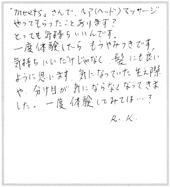 "merrys" さんで、ヘア(ヘッド)マッサージ
やってもらったことあります?
とっても気持ちいいんです。
一度体験したら もうやみつきです。
気持ちいいだけじゃなく 髪にも良い
ように思います 気になっていた生え際
や 分け目が気にならなくなってきま
した。一度体験してみては…?
R.K.